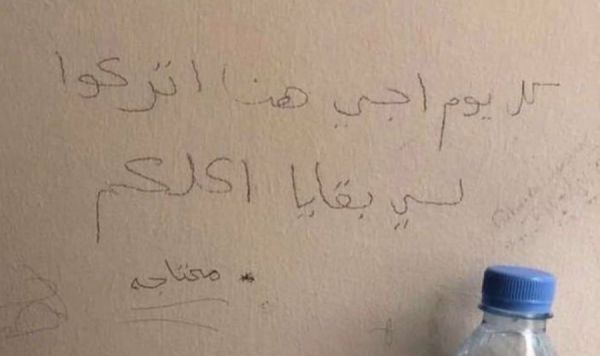 كل يوم اجي هنا اتركوا
لي بقايا اكلكم
محتاجه